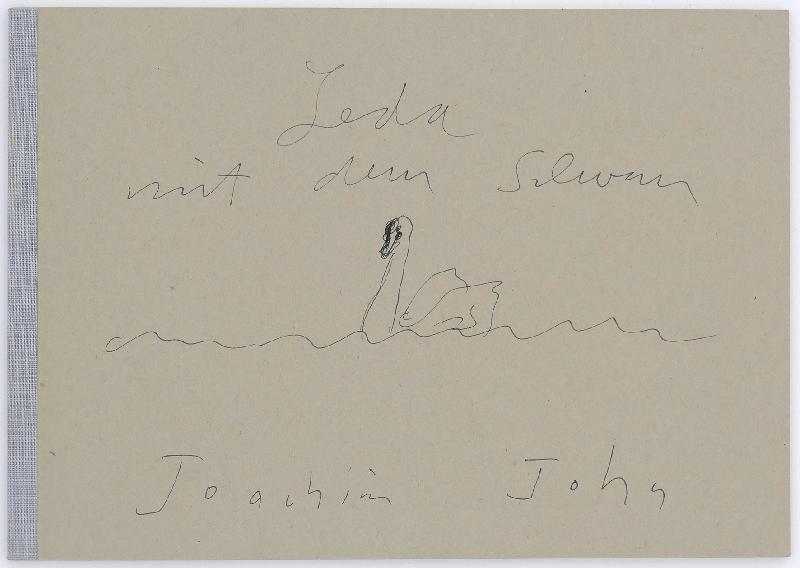 Leda
mit dem Schwan
Joachim John